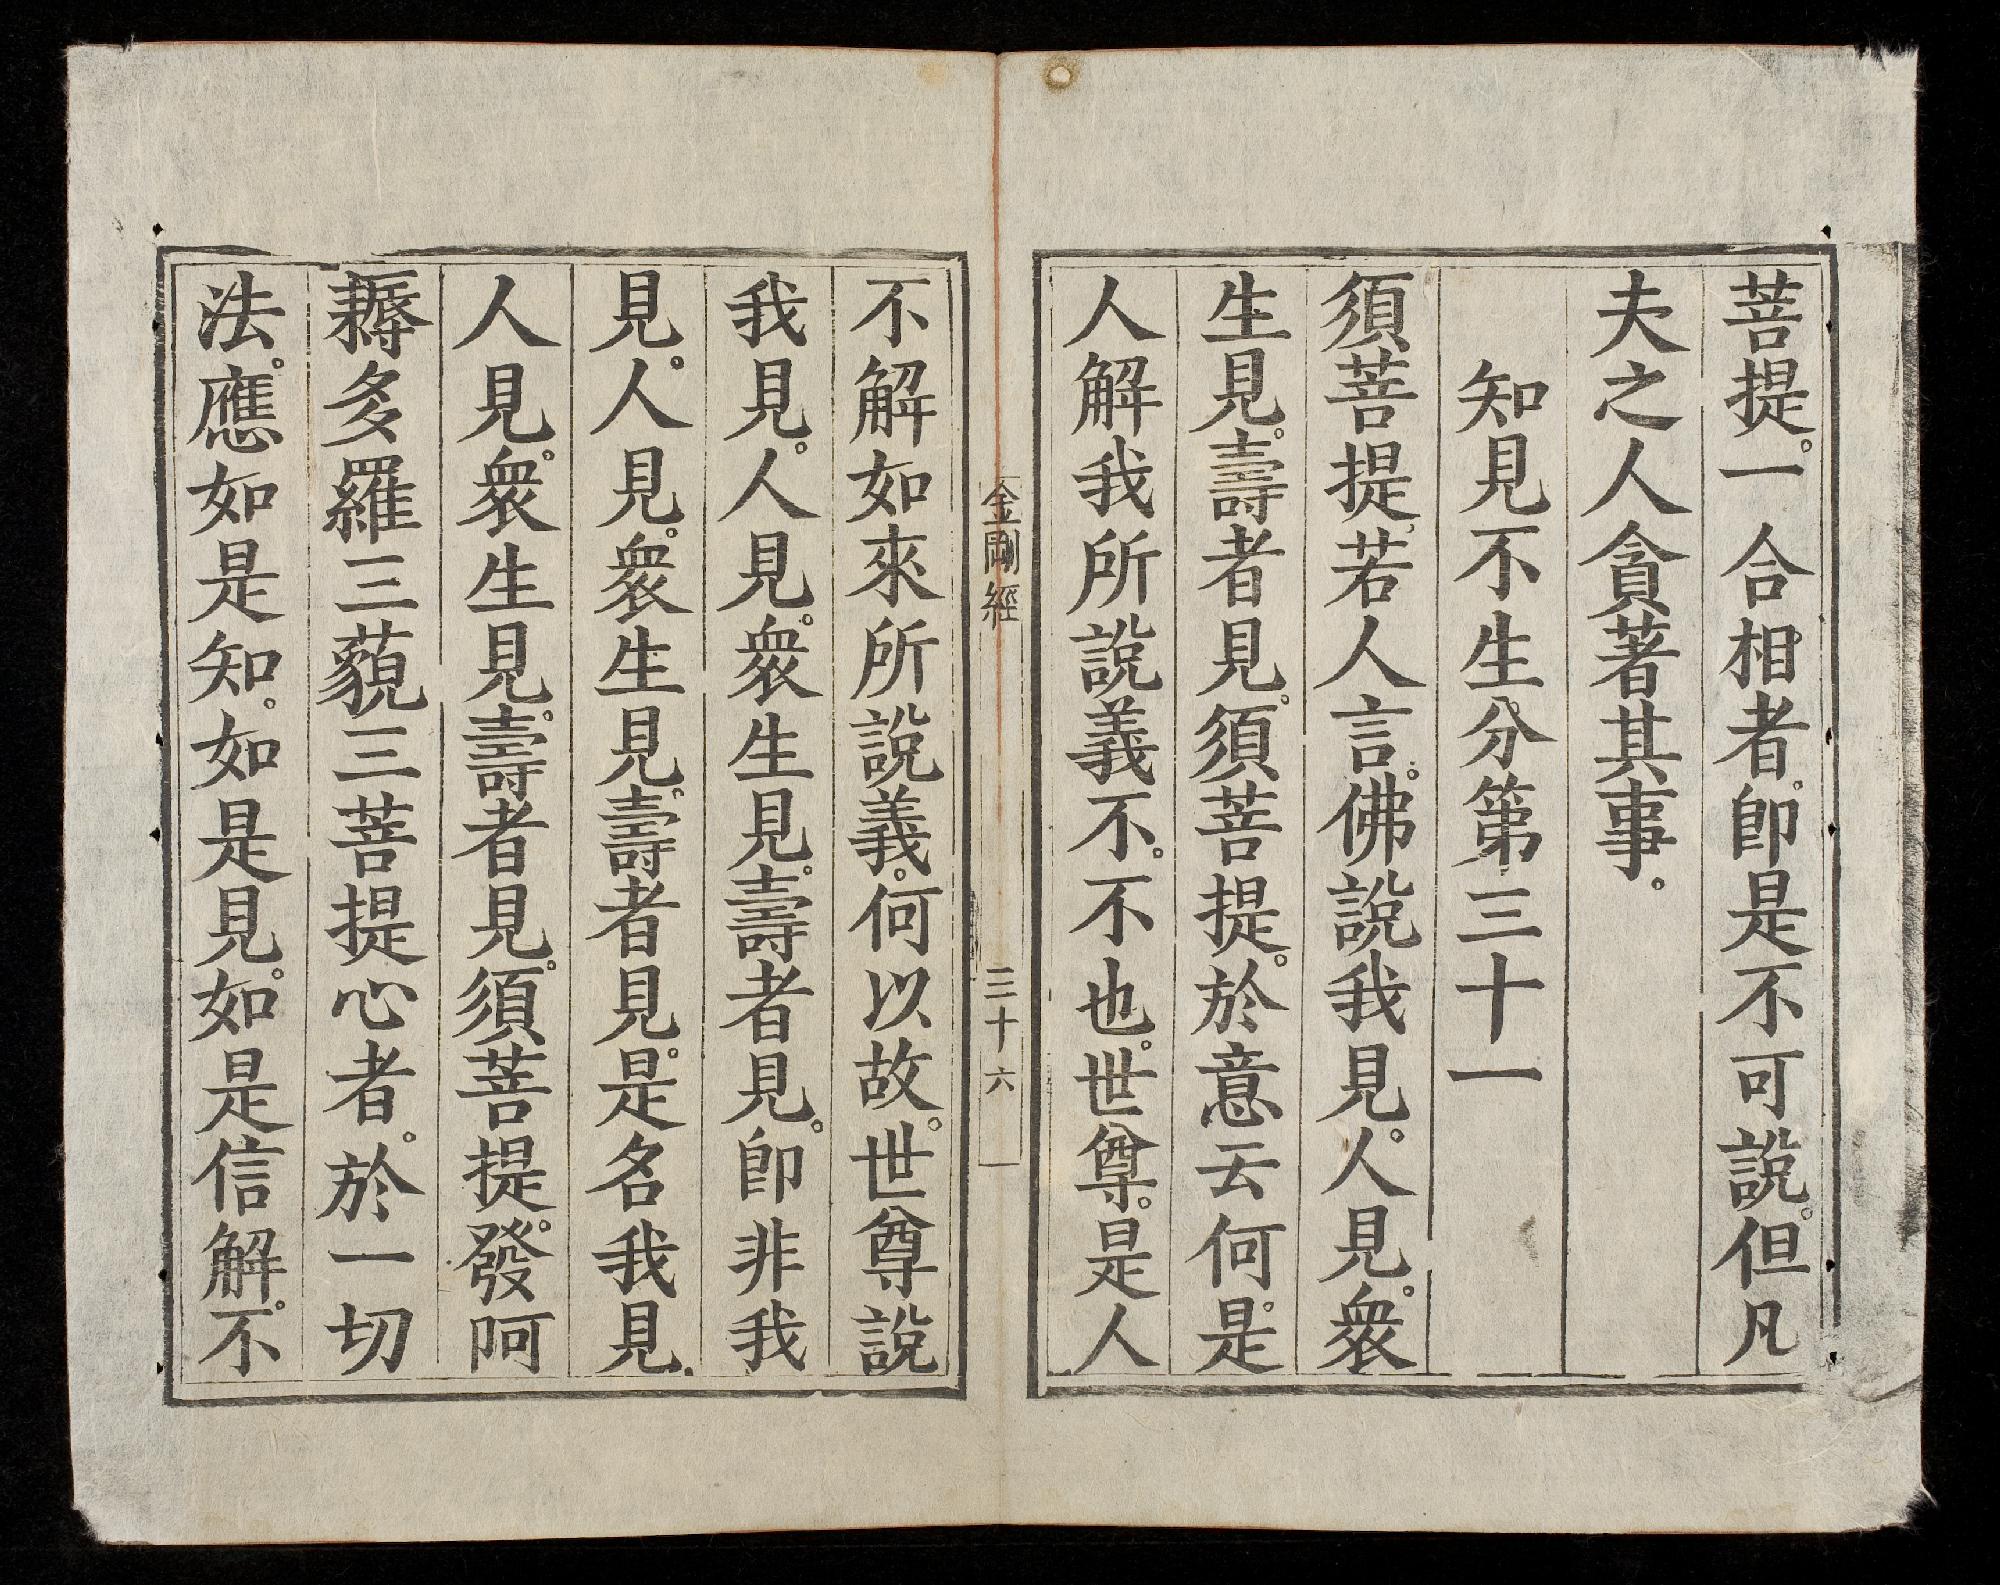 菩提。一合相者。即是不可說。但凡
夫之人貪著其事。
知見不生分第三十一
須菩提。若人言。佛說我見。人見。衆
生見。壽者見。須菩提。於意云何。是
人解我所說義不。不也。世尊。是人
金剛經
三十六
不解如來所說義。何以故。世尊說
我見。人見。衆生見。壽者見。即非我
見。人見。衆生見。壽者見。是名我見。
人見。衆生見。壽者見。須菩提。發阿
耨多羅三藐三菩提心者。於一切
法。應如是知。如是見。如是信解。不